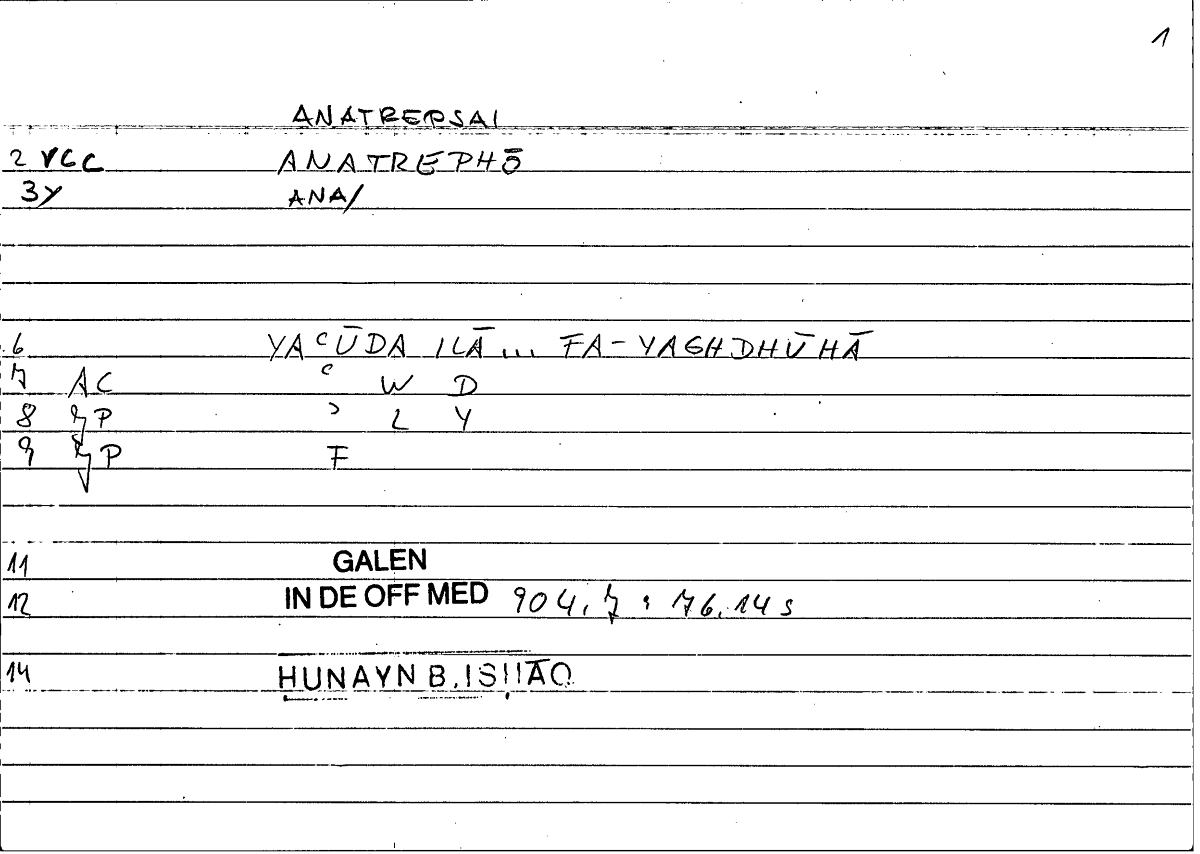 1
ANATREPSAI
2 VCC ANATREPHŌ
3y ANA/
6 YAʿŪDA ILĀ... FA-YAGHDHŪHĀ
7 AC ʿ W D
8 ʾ L Y
9 F
11 GALEN
12 IN DE OFF MED 904,7 : 76.14s
14 ḤUNAYN B. ISḤĀQ